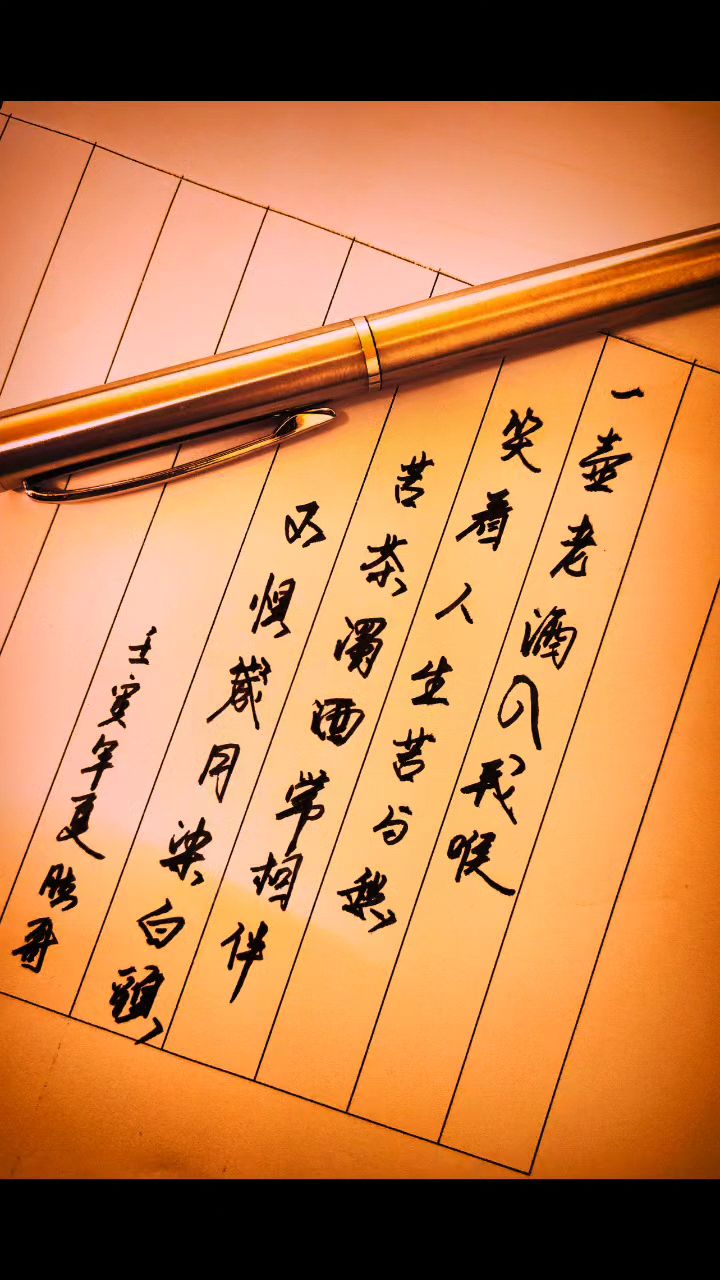 一壶老酒入我喉
笑看人生苦与愁
苦茶濁酒常相伴
不惧歲月染白頭
壬寅年夏勝哥